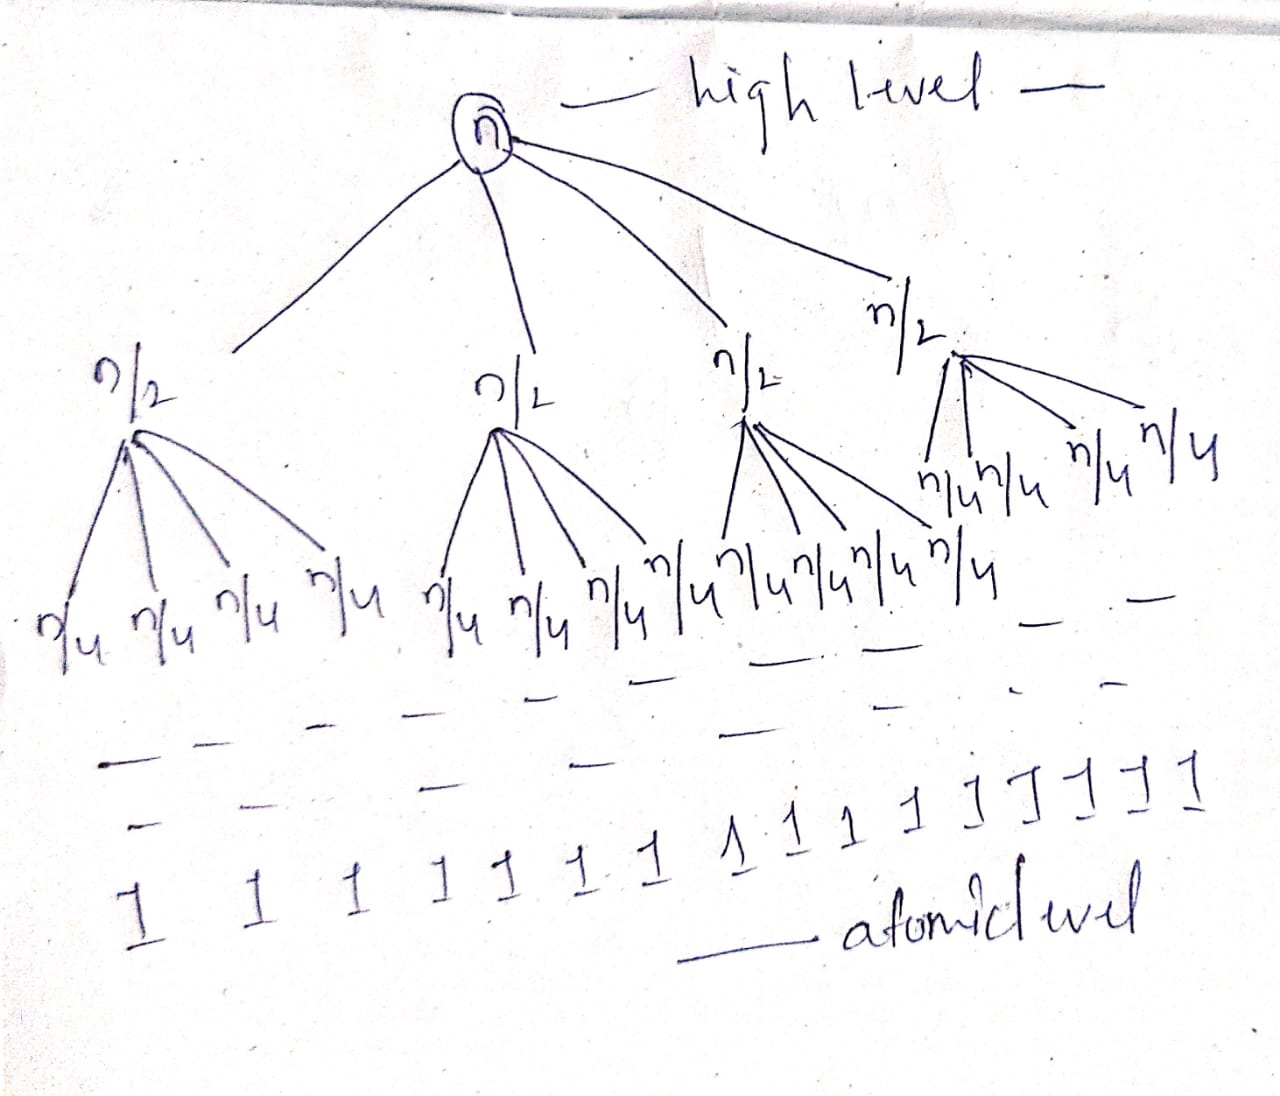 n — high level —
n/2 n/2 n/2 n/2
n/4 n/4 n/4 n/4 n/4 n/4 n/4 n/4 n/4 n/4 n/4 n/4 n/4 n/4 n/4 n/4
1 1 1 1 1 1 1 1 1 1 1 1 1 1 1 1
— atomic level